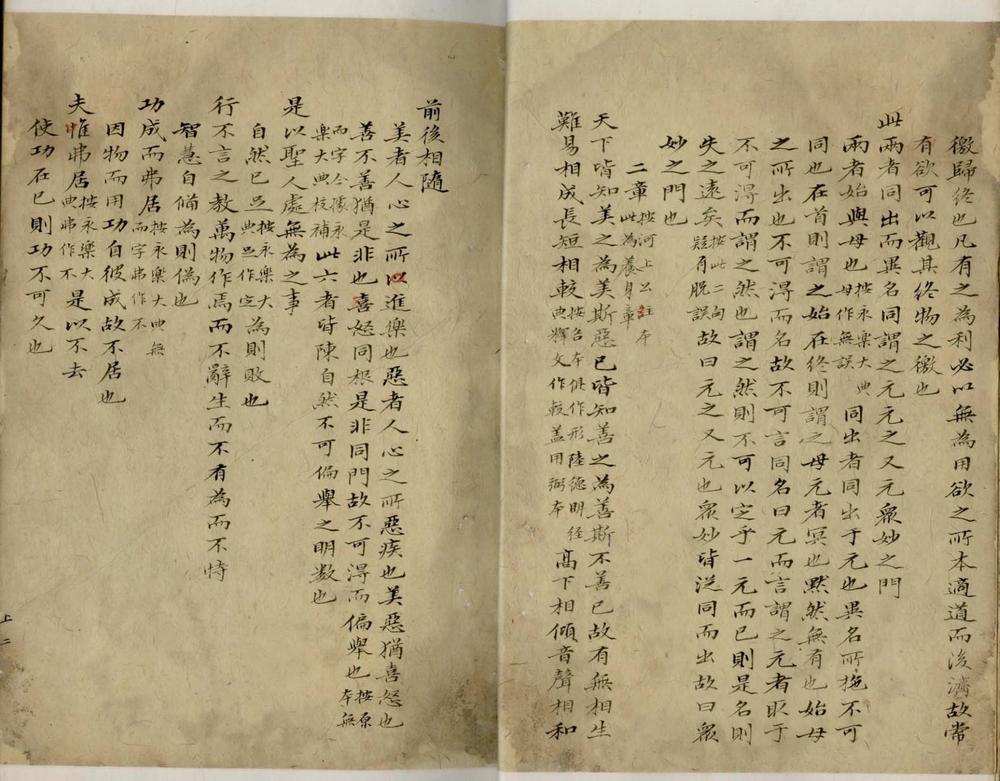 徼歸終也凡有之為利必以無為用欲之所本適道而後濟故常
有欲可以觀其終物之徼也
此兩者同出而異名同謂之元元之又元衆妙之門
兩者始與母也按永樂大典母作無誤同出者同出于元也異名所施不可
同也在首則謂之始在終則謂之母元者冥也默然無有也始母
之所出也不可得而名故不可言同名曰元而言謂之元者取于
不可得而謂之然也謂之然則不可以定乎一元而已則是名則
失之遠矣按此二句疑有脱誤故曰元之又元也衆妙皆從同而出故曰衆
妙之門也
二章按河上公註本此為養身章
天下皆知美之為美斯惡已皆知善之為善斯不善已故有無相生
難易相成長短相較按各本俱作形陸德明經典釋文作較蓋用弼本高下相傾音聲相和
前後相隨
美者人心之所以進樂也惡者人心之所惡疾也美惡猶喜怒也
善不善猶是非也喜怒同根是非同門故不可得而偏舉也按原本無
而字今據永樂大典校補此六者皆陳自然不可偏舉之明數也
是以聖人處無為之事
自然已足按永樂大典足作定為則敗也
行不言之教萬物作焉而不辭生而不有為而不恃
智慧自備為則偽也
功成而弗居按永樂大典無而字弗作不
因物而用功自彼成故不居也
夫惟弗居按永樂大典弗作不是以不去
使功在己則功不可久也
上二